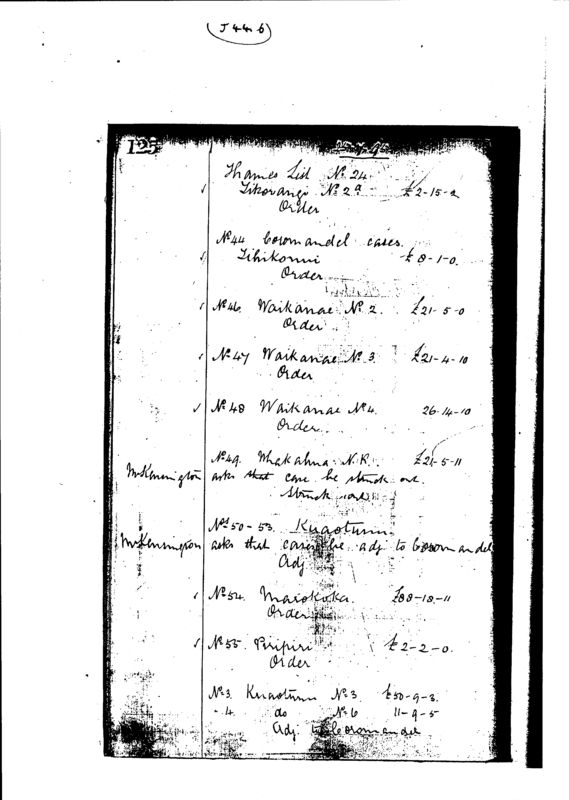 (J 44 b)
125
Thames List No. 24
No 2a £2-15-2
Order
No 44 Coromandel cases.
Tihikomui £ 8-1-0.
Order
No 46. Waikanae No 2. £21-5-0
Order
No 47 Waikanae No 3. £21-4-10
Order
No 48 Waikanae No 4. 26-14-10
Order
No 49. N.R. £21-5-11
asks that case be struck out.
Struck out
Nos 50-53. Kuaotunu
asks that cases be adj to Coromandel
Adj
No 54. £88-18-11
Order
No 55. Piripiri £2-2-0.
Order
No 3. Kuaotunu No 3. £50-9-3.
" 4. do No 6 11-9-5
Adj to Coromandel